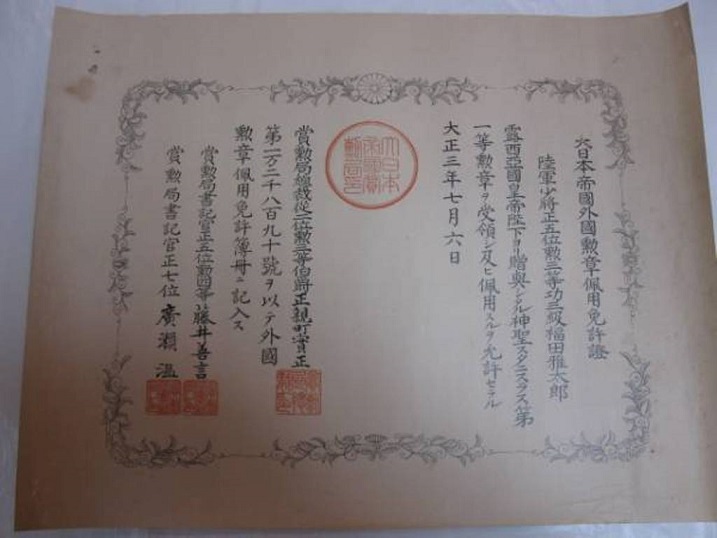 大日本帝國外國勲章佩用免許證
陸軍少將正五位勲三等功三級福田雅太郎
露西亞國皇帝陛下ヨリ贈與シタル神聖スタニスラス第
一等勲章ヲ受領シ及ヒ佩用スルヲ允許セラル
大正三年七月六日
大日本
帝國賞
勲局印
賞勲局總裁從二位勲三等伯爵正親町實正
第一万二千八百九十號ヲ以テ外國
勲章佩用免許簿冊ニ記入ス
賞勲局書記官正五位勲四等藤井善言
賞勲局書記官正七位廣瀬温